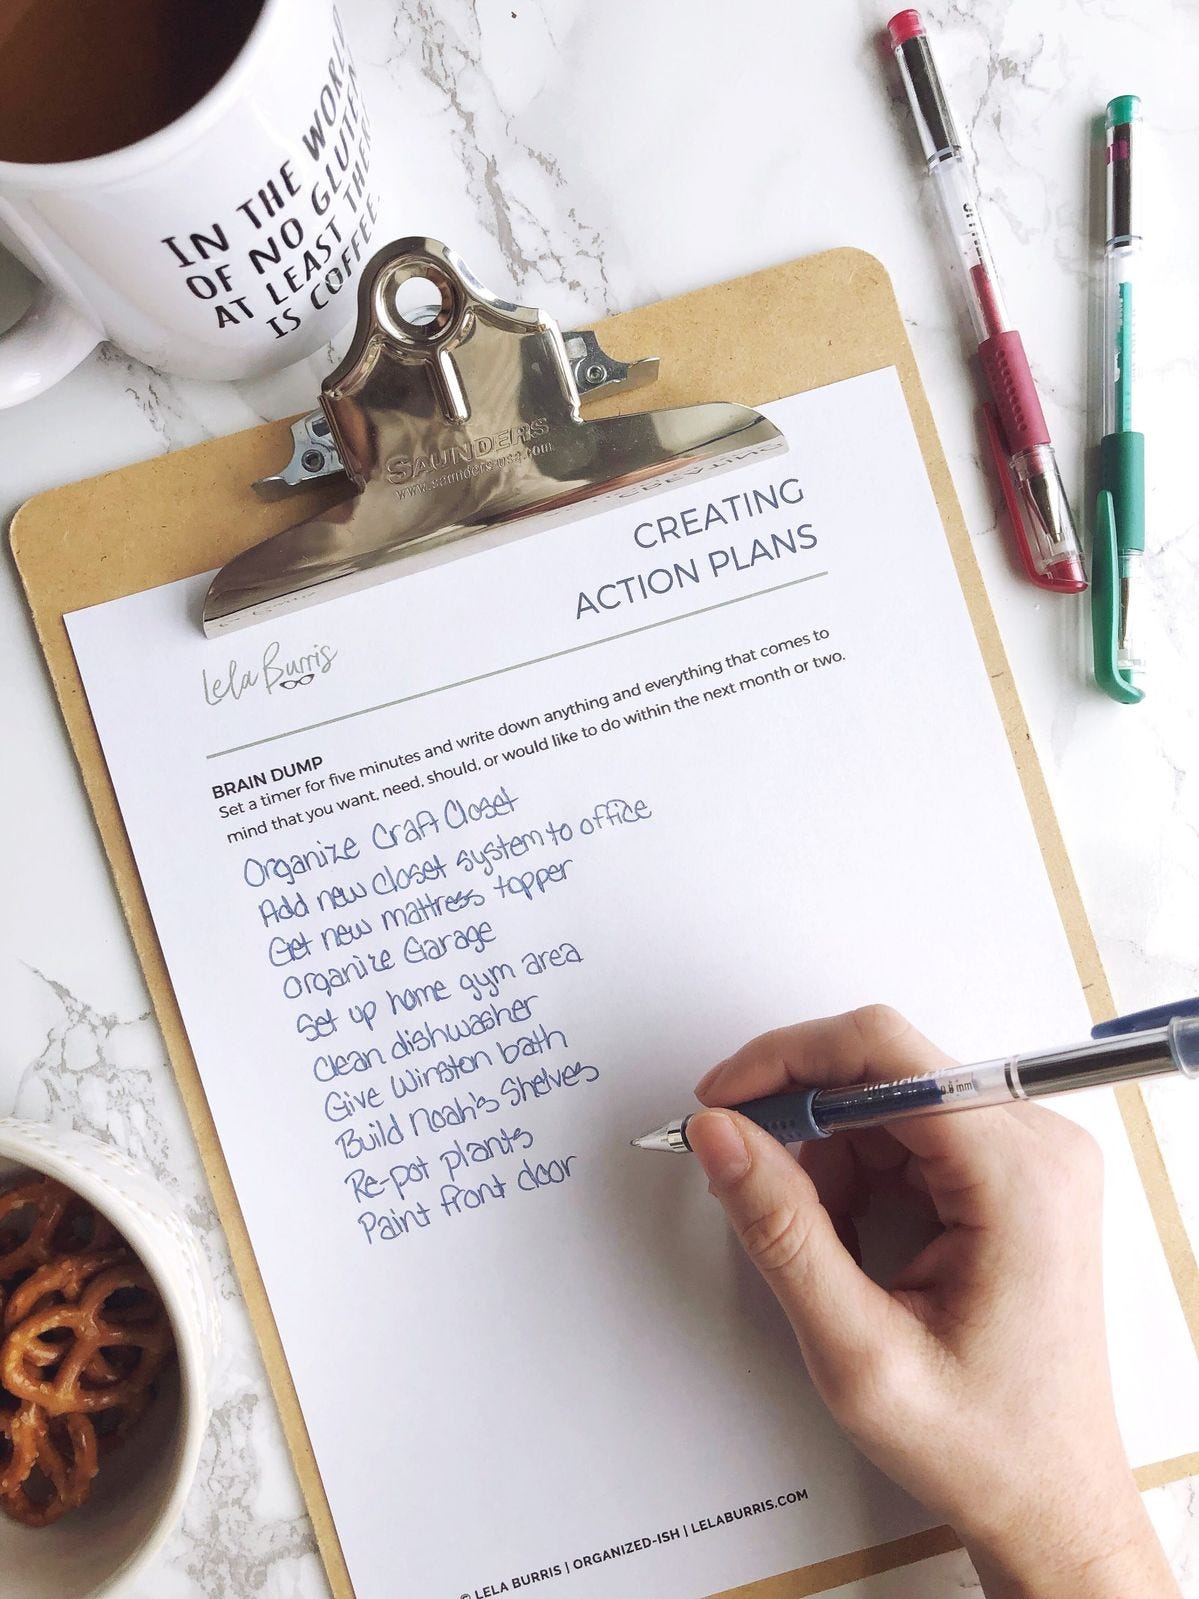 IN THE WORLD
OF NO GLUTEN
AT LEAST THERE
IS COFFEE.
SAUNDERS
www.saunders-usa.com
CREATING
ACTION PLANS
Lela Burris
BRAIN DUMP
Set a timer for five minutes and write down anything and everything that comes to
mind that you want, need, should, or would like to do within the next month or two.
Organize Craft Closet
Add new closet system to office
Get new mattress topper
Organize Garage
Set up home gym area
Clean dishwasher
Give Winston bath
Build Noah's Shelves
Re-pot plants
Paint front door
0.8 mm
© LELA BURRIS | ORGANIZED-ISH | LELABURRIS.COM